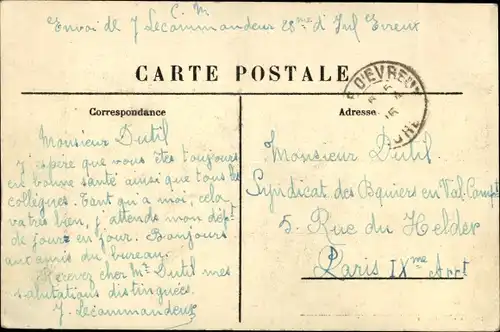 C. M.
Envoi de J Lecommandeur 28me d'Inf Evreux
CARTE POSTALE
D'EVREUX
Correspondance
Adresse
Monsieur Dutil
J'espère que vous êtes toujours
en bonne santé ainsi que tous les
collègues. Tant qu'a moi, cela
va très bien, j'attends mon dépt
de jour en jour. Bonjours
aux amis du bureau.
Recevez cher Mr Dutil mes
salutations distinguées.
J. Lecommandeur
Monsieur Dutil
Syndicat des Bquiers en Val. Compt
5. Rue du Helder
Paris IXme Arrt